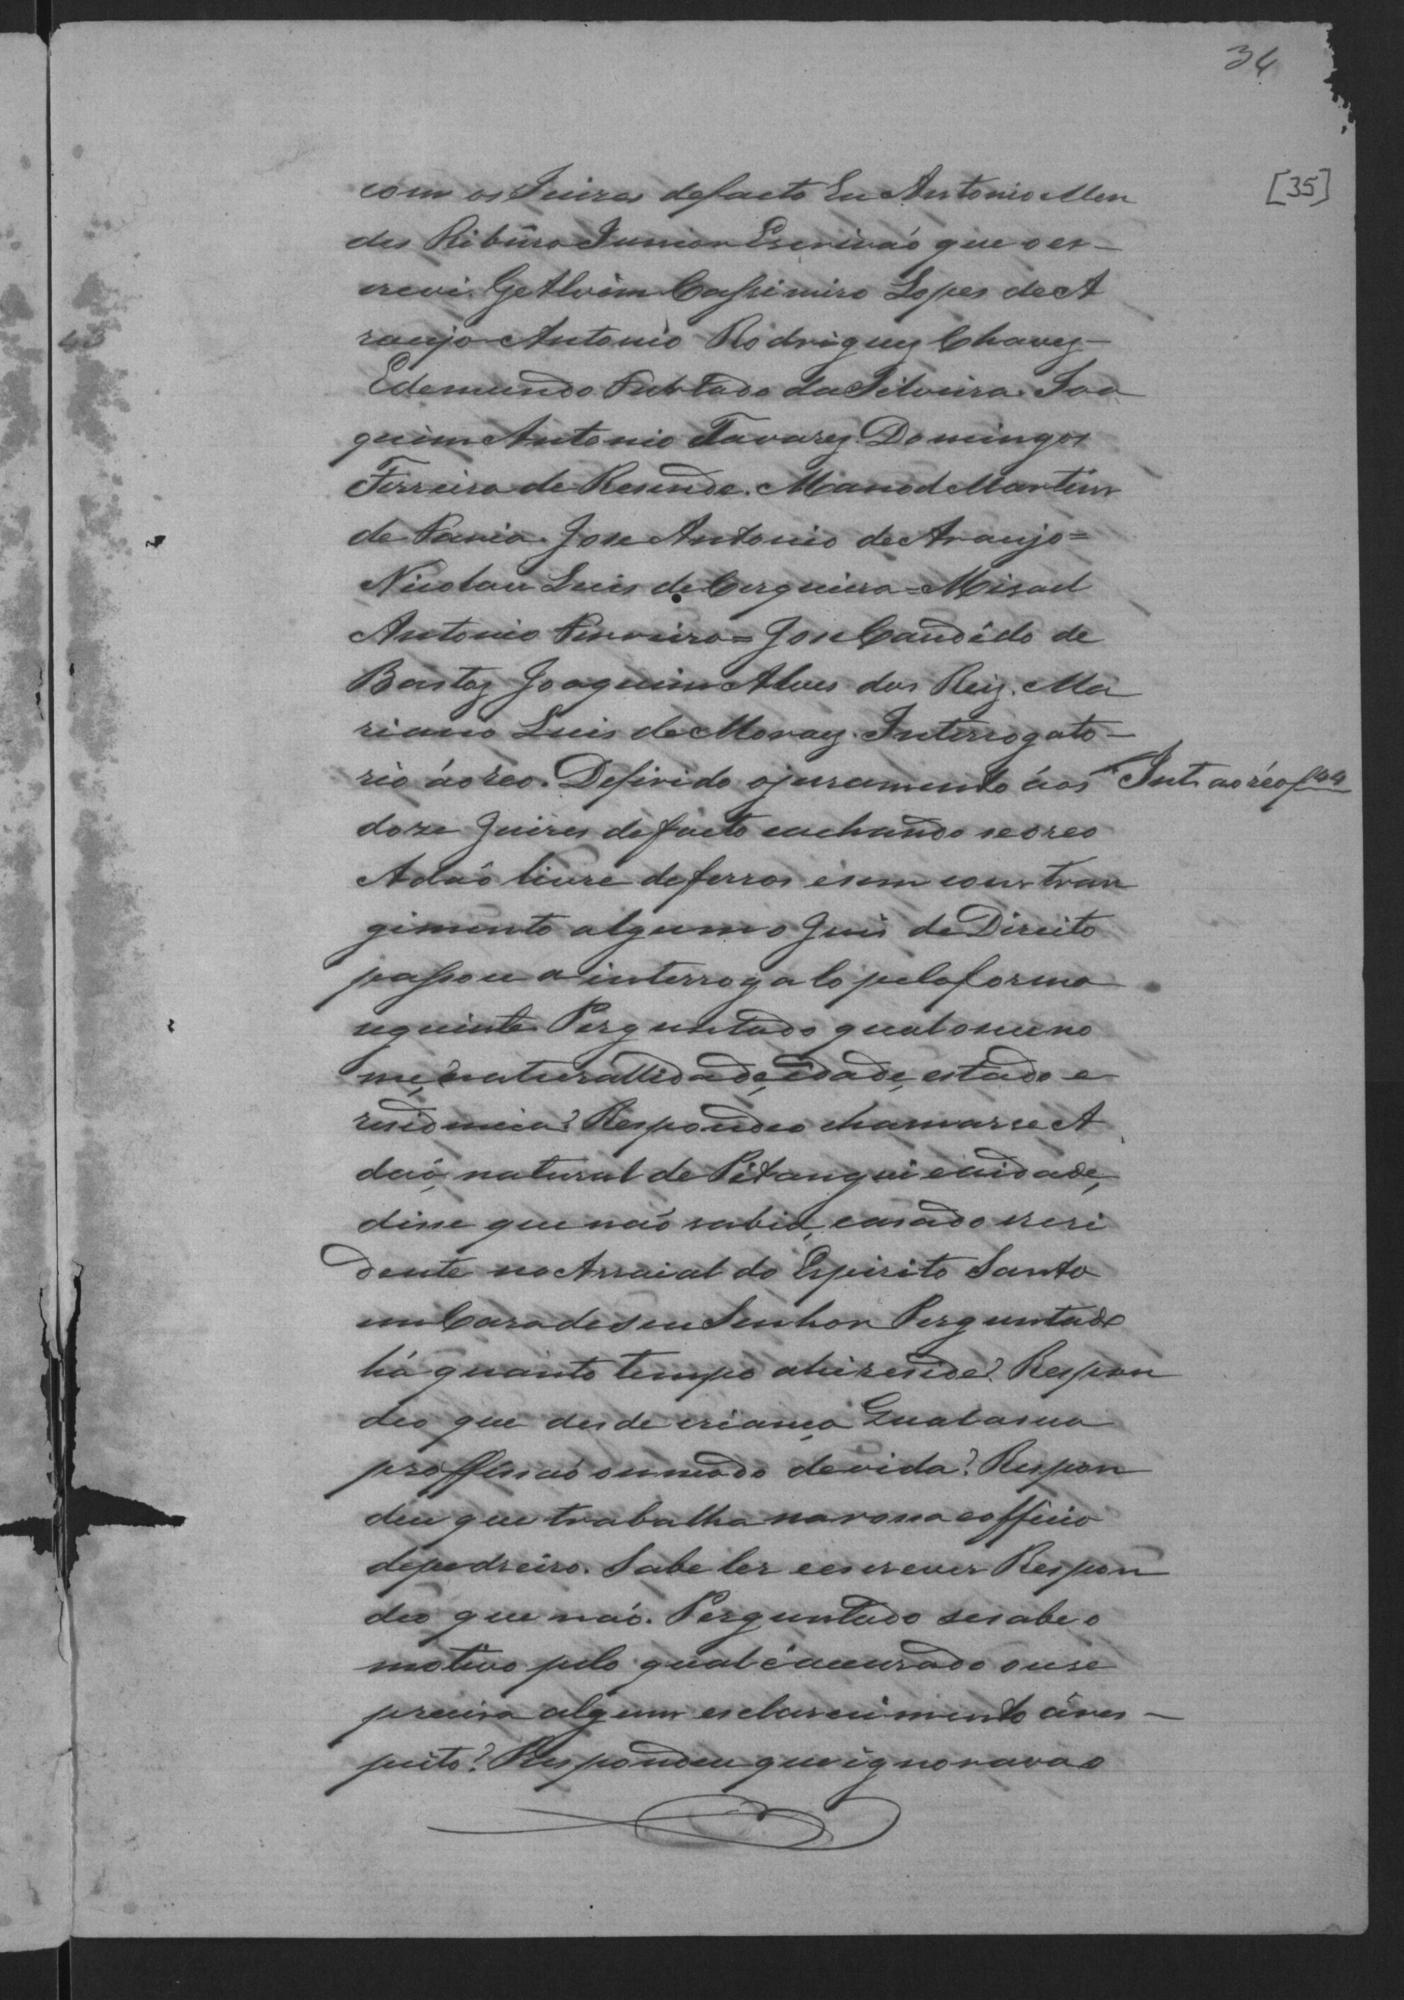 34
[35]
com os Juizes de facto Eu Antonio Men
des Ribeiro Junior Escrivaõ que o es-
crevi. G Alvim Cassimiro Lopes de A
raujo Antonio Rodrigues Chaves-
Edemundo Furtado da Silveira. Joa
quim Antonio Tavares. Domingos
Ferreira de Resende. Manoel Martins
de Faria. Jose Antonio de Araujo=
Nicolau Luis de Cerqueira=Misael
Antonio Ferreira=Jose Candido de
Bastos Joaquim Alves dos Reis. Ma
riano Luis de Moraes. Interrogato-
rio áo reo. Defirido o juramento áos
Int. ao réo f 44
doze Juizes de facto eachando se o reo
Adaõ livre de ferros e sem constran
gimento algum o Juis de Direito
passou a interrogalo pela forma
seguinte Perguntado qual o seu no
me, naturallidade, idade, estado e
residencia? Respondeo chamar se A
daõ, natural de Pitangui e a idade,
disse que naõ sabia, casado e resi
dente no Arraial do Espirito Santo
em Casa de seu Senhor Perguntado
há quanto tempo ahi reside? Respon
deo que desde criança Qual a sua
proffissaõ ou modo de vida? Respon
deu que trabalha na rossa e officio
de pedreiro. Sabe ler e escrever Respon
deo que naõ. Perguntado se sabe o
motivo pelo qual é accusado ou se
precisa algum esclarecimento á res-
peito? Respondeu que ignorava o